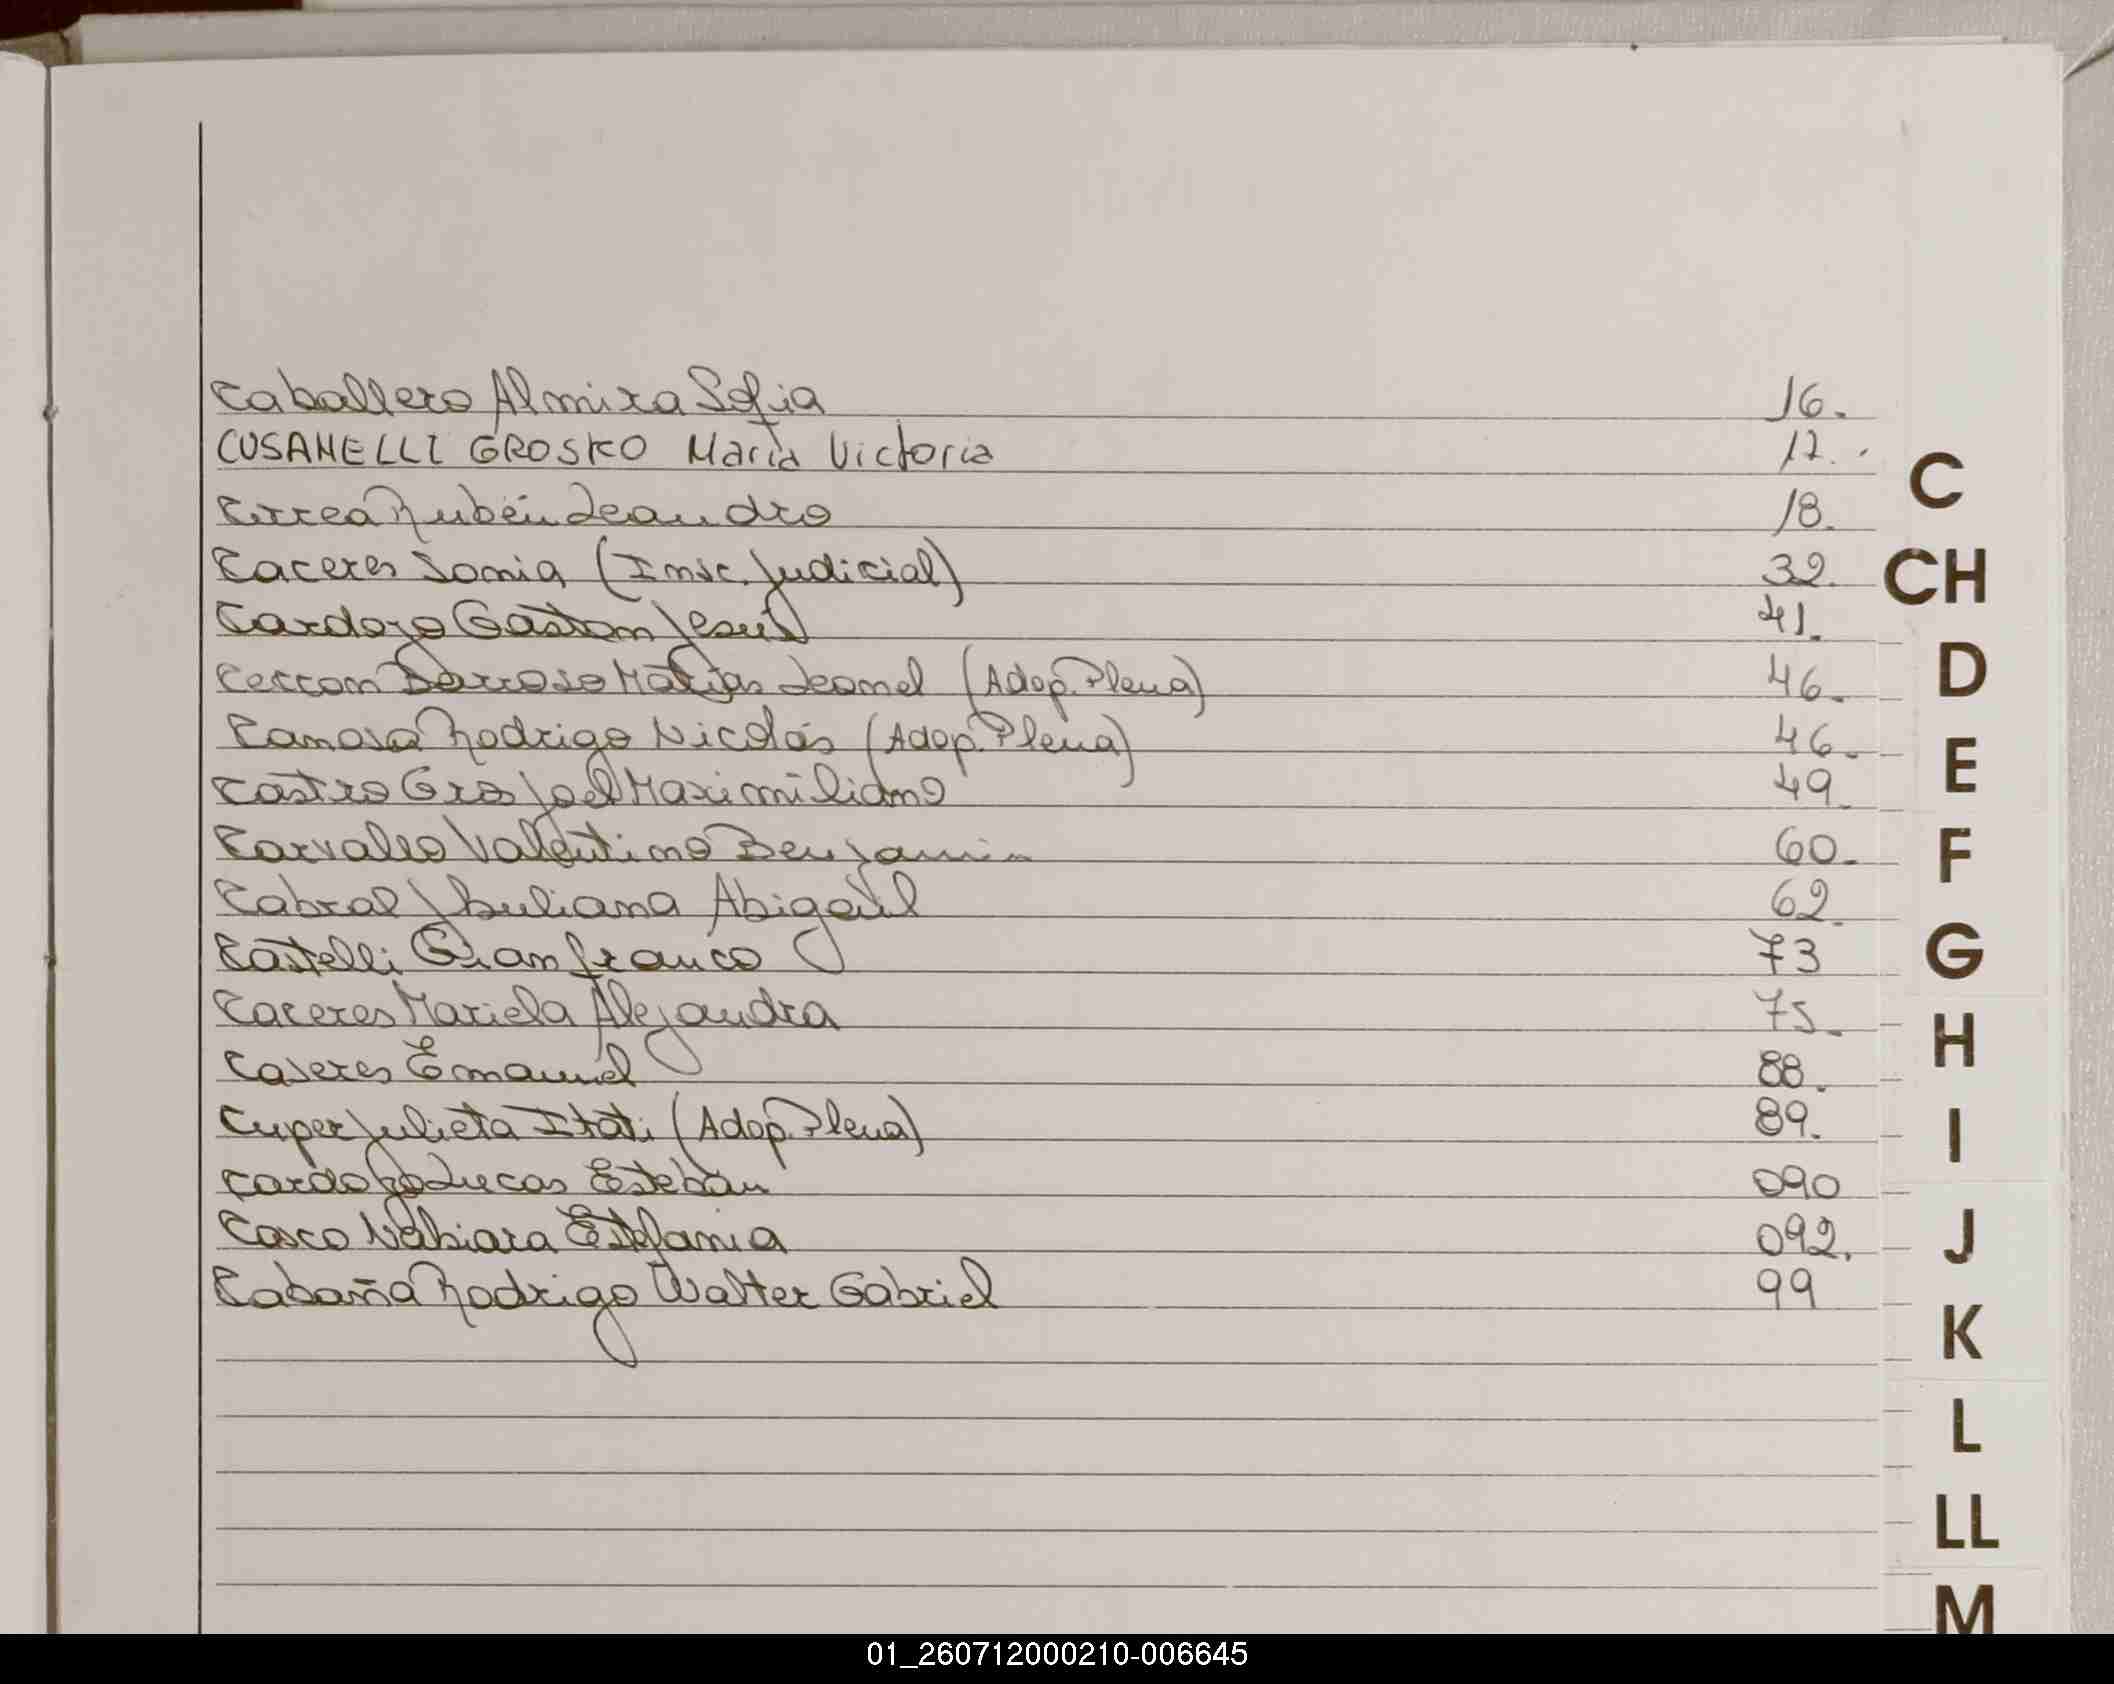 Caballero Almira Sofia 16.
CUSANELLI GROSKO María Victoria 17.
Correa Rubén Leandro 18.
Caceres Sonia (Insc. Judicial) 32.
Cardozo Gastón Jesús 41.
Ceccon Barroso Matías Leonel (Adop. Plena) 46.
Canosa Rodrigo Nicolás (Adop. Plena) 46.
Castro Gros Joel Maximiliano 49
Carvallo Valentino Benjamin 60.
Cabral Juliana Abigail 62
Castelli Gianfranco 73
Caceres Mariela Alejandra 75.
Caseres Emanuel 88.
Cuper Julieta Itatí (Adop. Plena) 89.
Cardozo Lucas Esteban 090
Casco Estefania 092.
Cabaña Rodrigo Walter Gabriel 99
C
CH
D
E
F
G
H
I
J
K
L
LL
M
01_260712000210-006645